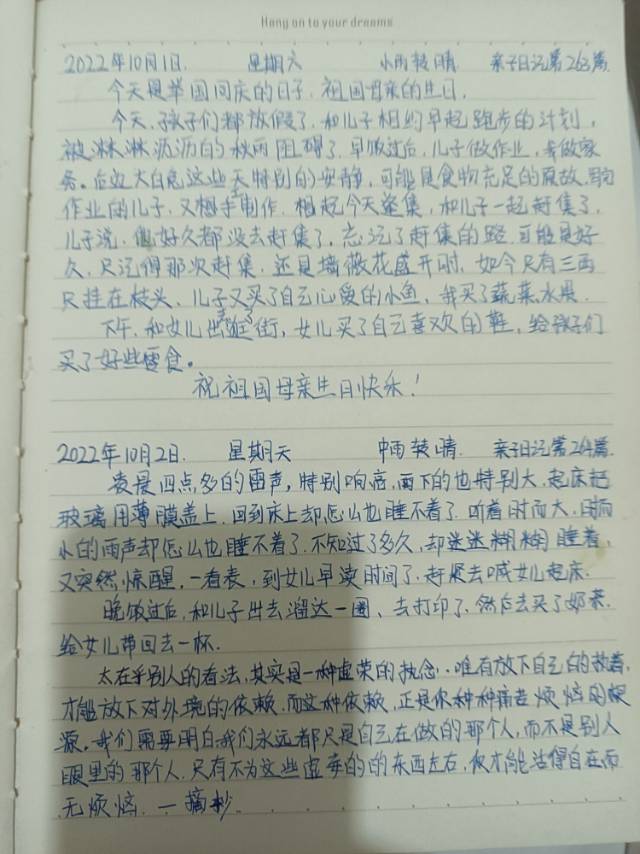 Hang on to your dreams
2022年10月1日. 星期六 小雨转晴 亲子日记第263篇.
今天是举国同庆的日子.祖国母亲的生日.
今天.孩子们都放假了.和儿子相约早起跑步的计划,
被淋淋沥沥的秋雨阻碍了.早饭过后,儿子做作业,我做家
务.后边大白鬼这些天特别的安静,可能是食物充足的原故.写完
作业的儿子.又想手制作.想起今天逢集,和儿子一起赶集了.
儿子说,他好久都没去赶集了,忘记了赶集的路.可能是好
久.只记得那次赶集.还是墙薇花盛开时,如今只有三两
只挂在枝头.儿子又买了自己心爱的小鱼,我买了蔬菜.水果.
下午.和女儿出去逛街,女儿买了自己喜欢的鞋,给孩子们
买了好些零食。
祝祖国母亲生日快乐!
2022年10月2日. 星期天 中雨转晴. 亲子日记第264篇.
凌晨四点多的雷声,特别响亮,雨下的也特别大.起床把
玻璃用薄膜盖上.回到床上却怎么也睡不着了.听着时而大,时而
小的雨声却怎么也睡不着了.不知过了多久,却迷迷糊糊睡着,
又突然惊醒,一看表,到女儿早读时间了.赶紧去喊女儿起床.
晚饭过后,和儿子出去溜达一圈、去打印了.然后去买了奶茶.
给女儿带回去一杯.
太在乎别人的看法,其实是一种虚荣的执念..唯有放下自己的执着,
才能放下对外境的依赖.而这种依赖,正是你种种痛苦烦恼的根
源。我们需要明白我们永远都只是自己在做的那个人,而不是别人
眼里的那个人.只有不为这些虚妄的的东西左右,你才能活得自在而
无烦恼.—摘抄.